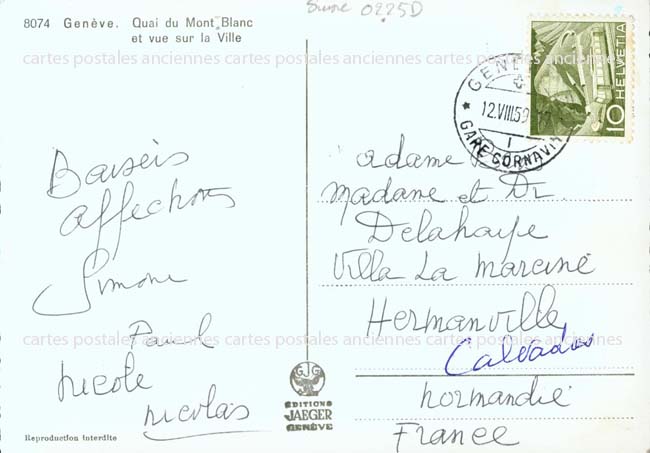 Suisse 0225D
8074 Genève. Quai du Mont Blanc
et vue sur la Ville
cartes postales anciennes cartes postales anciennes cartes postales anciennes
GENÈVE
12.VIII.59
1
GARE CORNAVIN
HELVETIA
10
Baisers
affections
Simone
Paul
Nicole
Nicolas
adame
Madame et Dr.
Delahaye
Villa La Marcine
Hermanville
Calvados
Normandie
France
cartes postales anciennes cartes postales anciennes cartes postales anciennes
cartes postales anciennes cartes postales anciennes cartes postales anciennes
GJG
EDITIONS
JAEGER
GENÈVE
Reproduction interdite